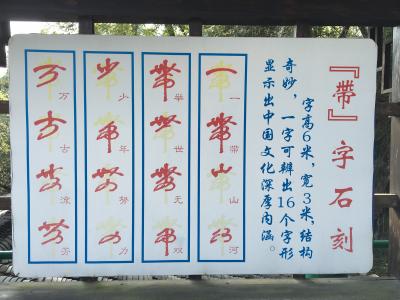 『帶』字石刻
字高6米，宽3米，结构
奇妙，一字可辨出16个字形
显示出中国文化深厚内涵。
一带山河
举世无双
少年努力
万古流芳